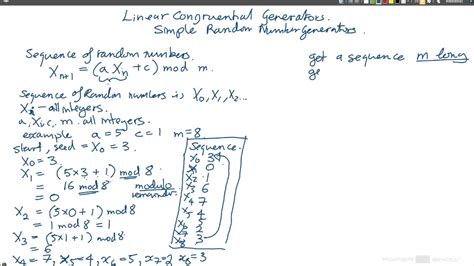 Linear Congruential Generators.
Simple Random Number Generators.
Sequence of random numbers.
Xn+1 = (a Xn + c) mod m.
Sequence of Random numbers is X0, X1, X2...
Xi - all integers.
a, X, c, m. all integers.
example a = 5 c = 1 m = 8
start, seed = X0 = 3.
X0 = 3.
X1 = (5×3 + 1) mod 8
= 16 mod 8
= 0
modulo
remainder.
X2 = (5×0 + 1) mod 8
= 1
X3 = (5×1 + 1) mod 8
= 6
X4 = 7, X5 = 4, X6 = 5, X7 = 2 X8 = 3
Sequence.
X0 3
X1 0
X2 1
X3 6
X4 7
X5 4
2
X8 3
get a sequence m long
ge